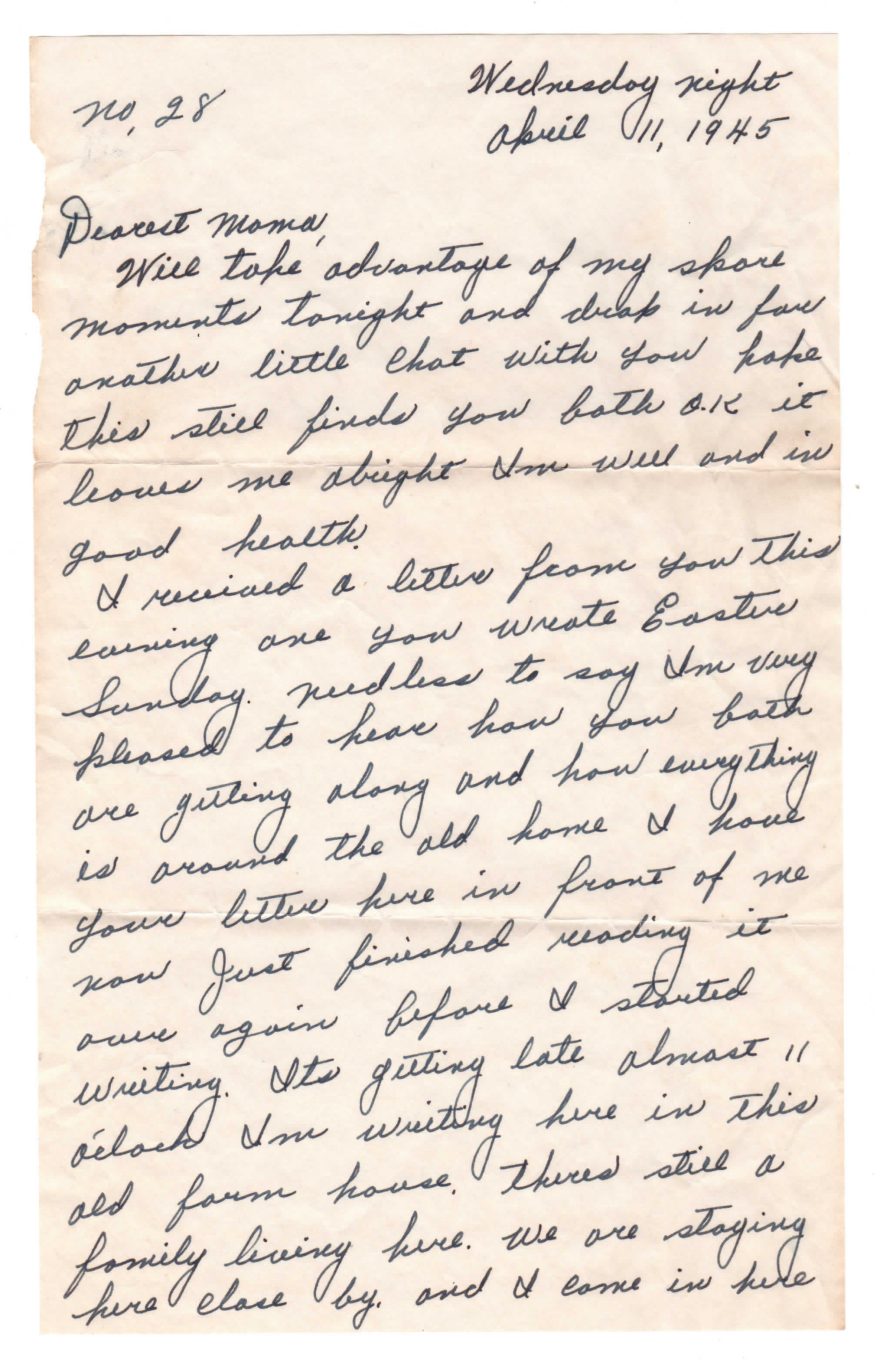 No. 28
Wednesday night
April 11, 1945
Dearest Mama,
Will take advantage of my spare
moments tonight and drop in for
another little chat with you hope
this still finds you both O.K it
leaves me alright Im well and in
good health.
I received a letter from you this
evening one you wrote Easter
Sunday. needless to say Im very
pleased to hear how you both
are getting along and how everything
is around the old home I have
your letter here in front of me
now Just finished reading it
over again before I started
writing. Its getting late almost 11
o'clock Im writing here in this
old farm house. Theres still a
family living here. We are staying
here close by. and I come in here